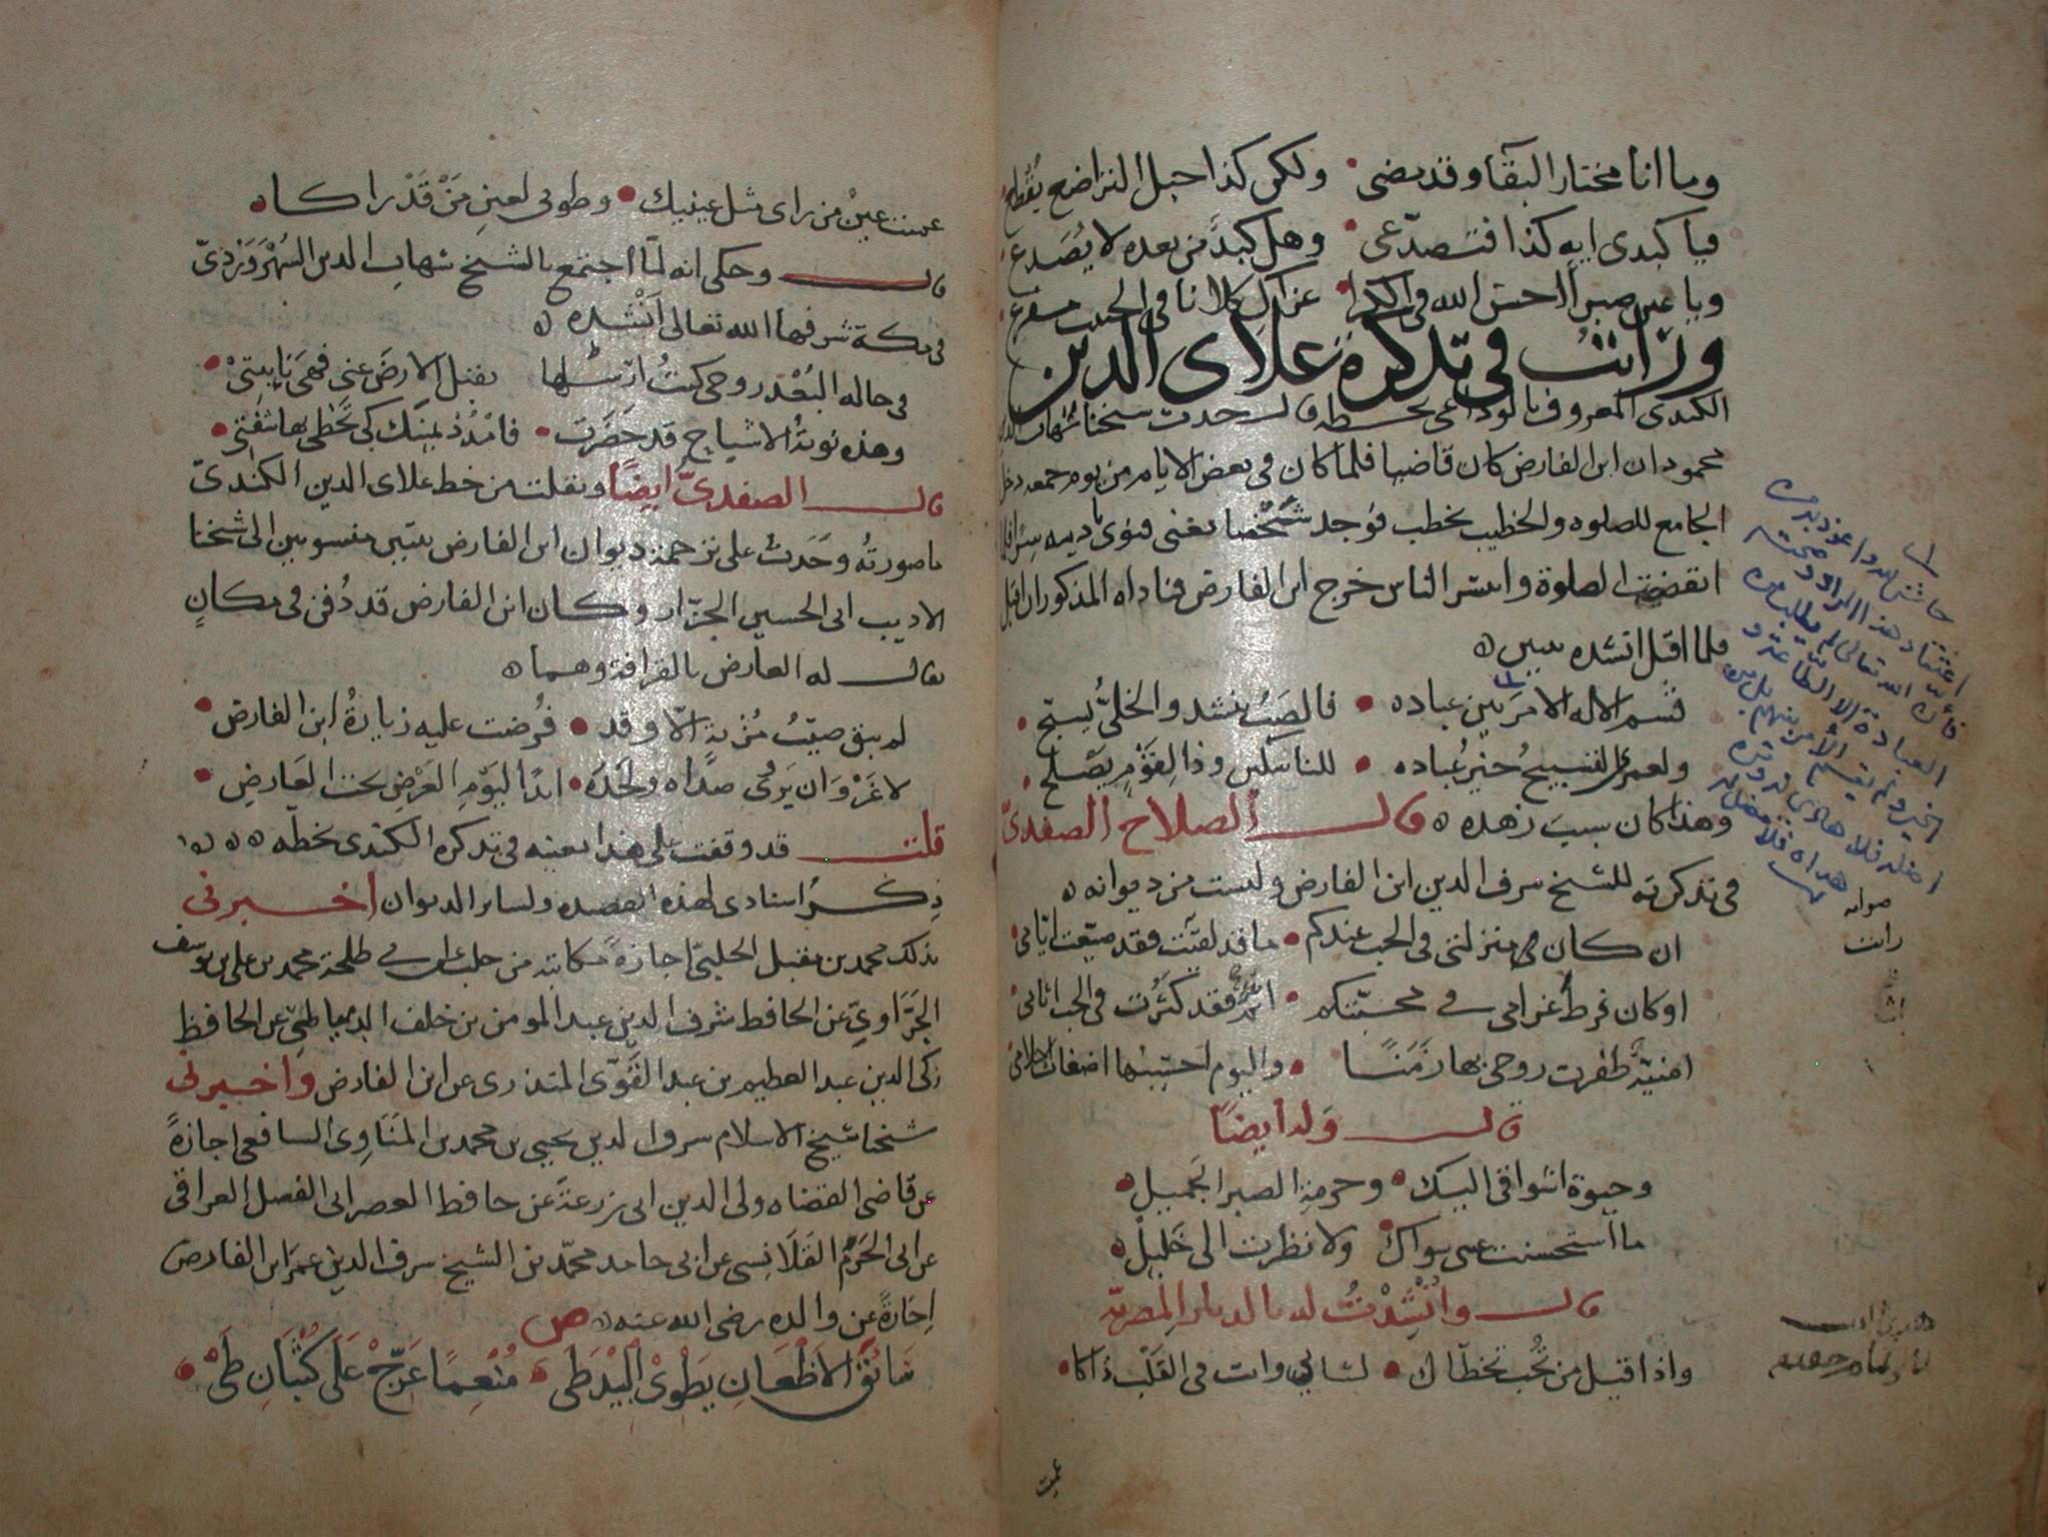 وما انا مختار البقآ وقد مضى • ولكن كذا حبل التراضع يقطع
فيا كبدى ايه كذا فتصدّعى • وهل كبدٌ من بعده لا يُصَدع
ويا عين صبرا احسن الله فى الكرا • عزاك كلانا فى الحبيب مفجع
ورايت فى تذكرة علاى الدين
الكندى المعروف بالوداعى بخطه قال حدث شيخنا شهاب الدين
محمود ان ابن الفارض كان قاضيا فلما كان فى بعض الايام من يوم جمعه دخل
الجامع للصلوه والخطيب يخطب فوجد شخصا يغنى فنوى تاديبه سرا فلما
انقضت الصلوة وانتشر الناس خرج ابن الفارض فناداه المذكور ان اقبل
فلما اقبل انشده بيتين ه
قسم الاله الامر بين عباده • فالصبّ ينشد والخلىُّ يسبّح •
ولعمرى التسبيح خير عُباده • للناسكين وذا لِقَومٍ يصلح •
وهذا كان سبب زهده ه قال الصلاح الصفدىّ
فى تذكرته للشيخ شرف الدين ابن الفارض وليست من ديوانه ه
ان كان منزلتى فى الحب عندكم • ما قد لقيت فقد ضيّعت ايّامى •
او كان فرط غرامى فى محبّتكم • اثم فقد كثُرت فى الحب اثامى •
امنيّة ظفرت روحى بها زمَنًا • واليوم احسبُها اضغاث احلامى
قال وله ايضًا
وحيوة اشواقى اليك • وحرمةِ الصبر الجَميل •
ما استحسنت عينى سواك • ولا نظرت الى خَليل •
قال وانْشِدْتُ له بالديار المصريّة
واذا قيل من تحب تخطّاك • لسانى وانت فى القَلْب ذاكا •
عميت
صوابه
رايت
عميت عينُ من راى مثل عينيك • وطوبى لعينِ مَنْ قَدْ راكا ه
قال وحكى انه لمّا اجتمع بالشيخ شهاب الدين السُهْرَوَرْدىّ
فى مكة شرفها الله تعالى اَنْشده ه
فى حاله البُعْد روحى كنتُ ارسلها تقبّل الارضَ عنى فهىَ نايبتىْ •
وهذه نوبةُ الاشباح قد حَضَرت • فامْدُدْ يمينَك كى تَحْظى بها شفَتى •
قال الصفدىّ ايضًا ونقلت من خط علاى الدين الكندىّ
ما صورتُه وجَدت على ترجمة ديوان ابن الفارض بيتين منسوبين الى شيخنا
الاديب ابى الحسين الجزّار وكان ابن الفارض قد دُفن فى مكانٍ
يقال له العارض بالقرافة وهما ه
لم يبق صيّبُ مُزنةٍ الّا وقد • فُرضت عليه زيارةُ ابن الفارض •
لا غَرْوَ ان يَروى صداه ولَحْدُه • ابدًا ليَومِ العَرْضِ تحت العَارِضِ •
قلت قد وقفت على هذا بعينه فى تذكره الكندى بخطّه ه ه ه ه
ذكرُ اسنادى لهذه القصيده ولساير الديوان اخبرنى
بذلك محمد بن مقبل الحلبىّ اجازةً مكاتبة من حلب عن ابى طلحة محمد بن على بن يوسف
الحَرَاوىّ عن الحافظ شرف الدين عبد المومن بن خلف الدمياطىّ عن الحافظ
زكى الدين عبد العظيم بن عبد القَوىّ المنذرى عن ابن الفارض واخبرنى
شيخنا شيخ الاسلام شرف الدين يحيى بن محمد بن المَنَاوِى الشافعى اجازةً
عن قاضى القضاه ولى الدين ابى زرعة عن حافظ العصر ابى الفضل العراقى
عن ابى الحَرَم القَلَانِسى عن ابى حامد محمّد بن الشيخ شرف الدين عمر ابن الفارض
اجازةً عن والده رضى الله عنه ه ص
سَائِقَ الاَظْعَانِ يَطْوِىْ البِيْدَ طَىْ • مُنْعِمًا عَرّجْ عَلَى كُثْبَانِ طَىْ •